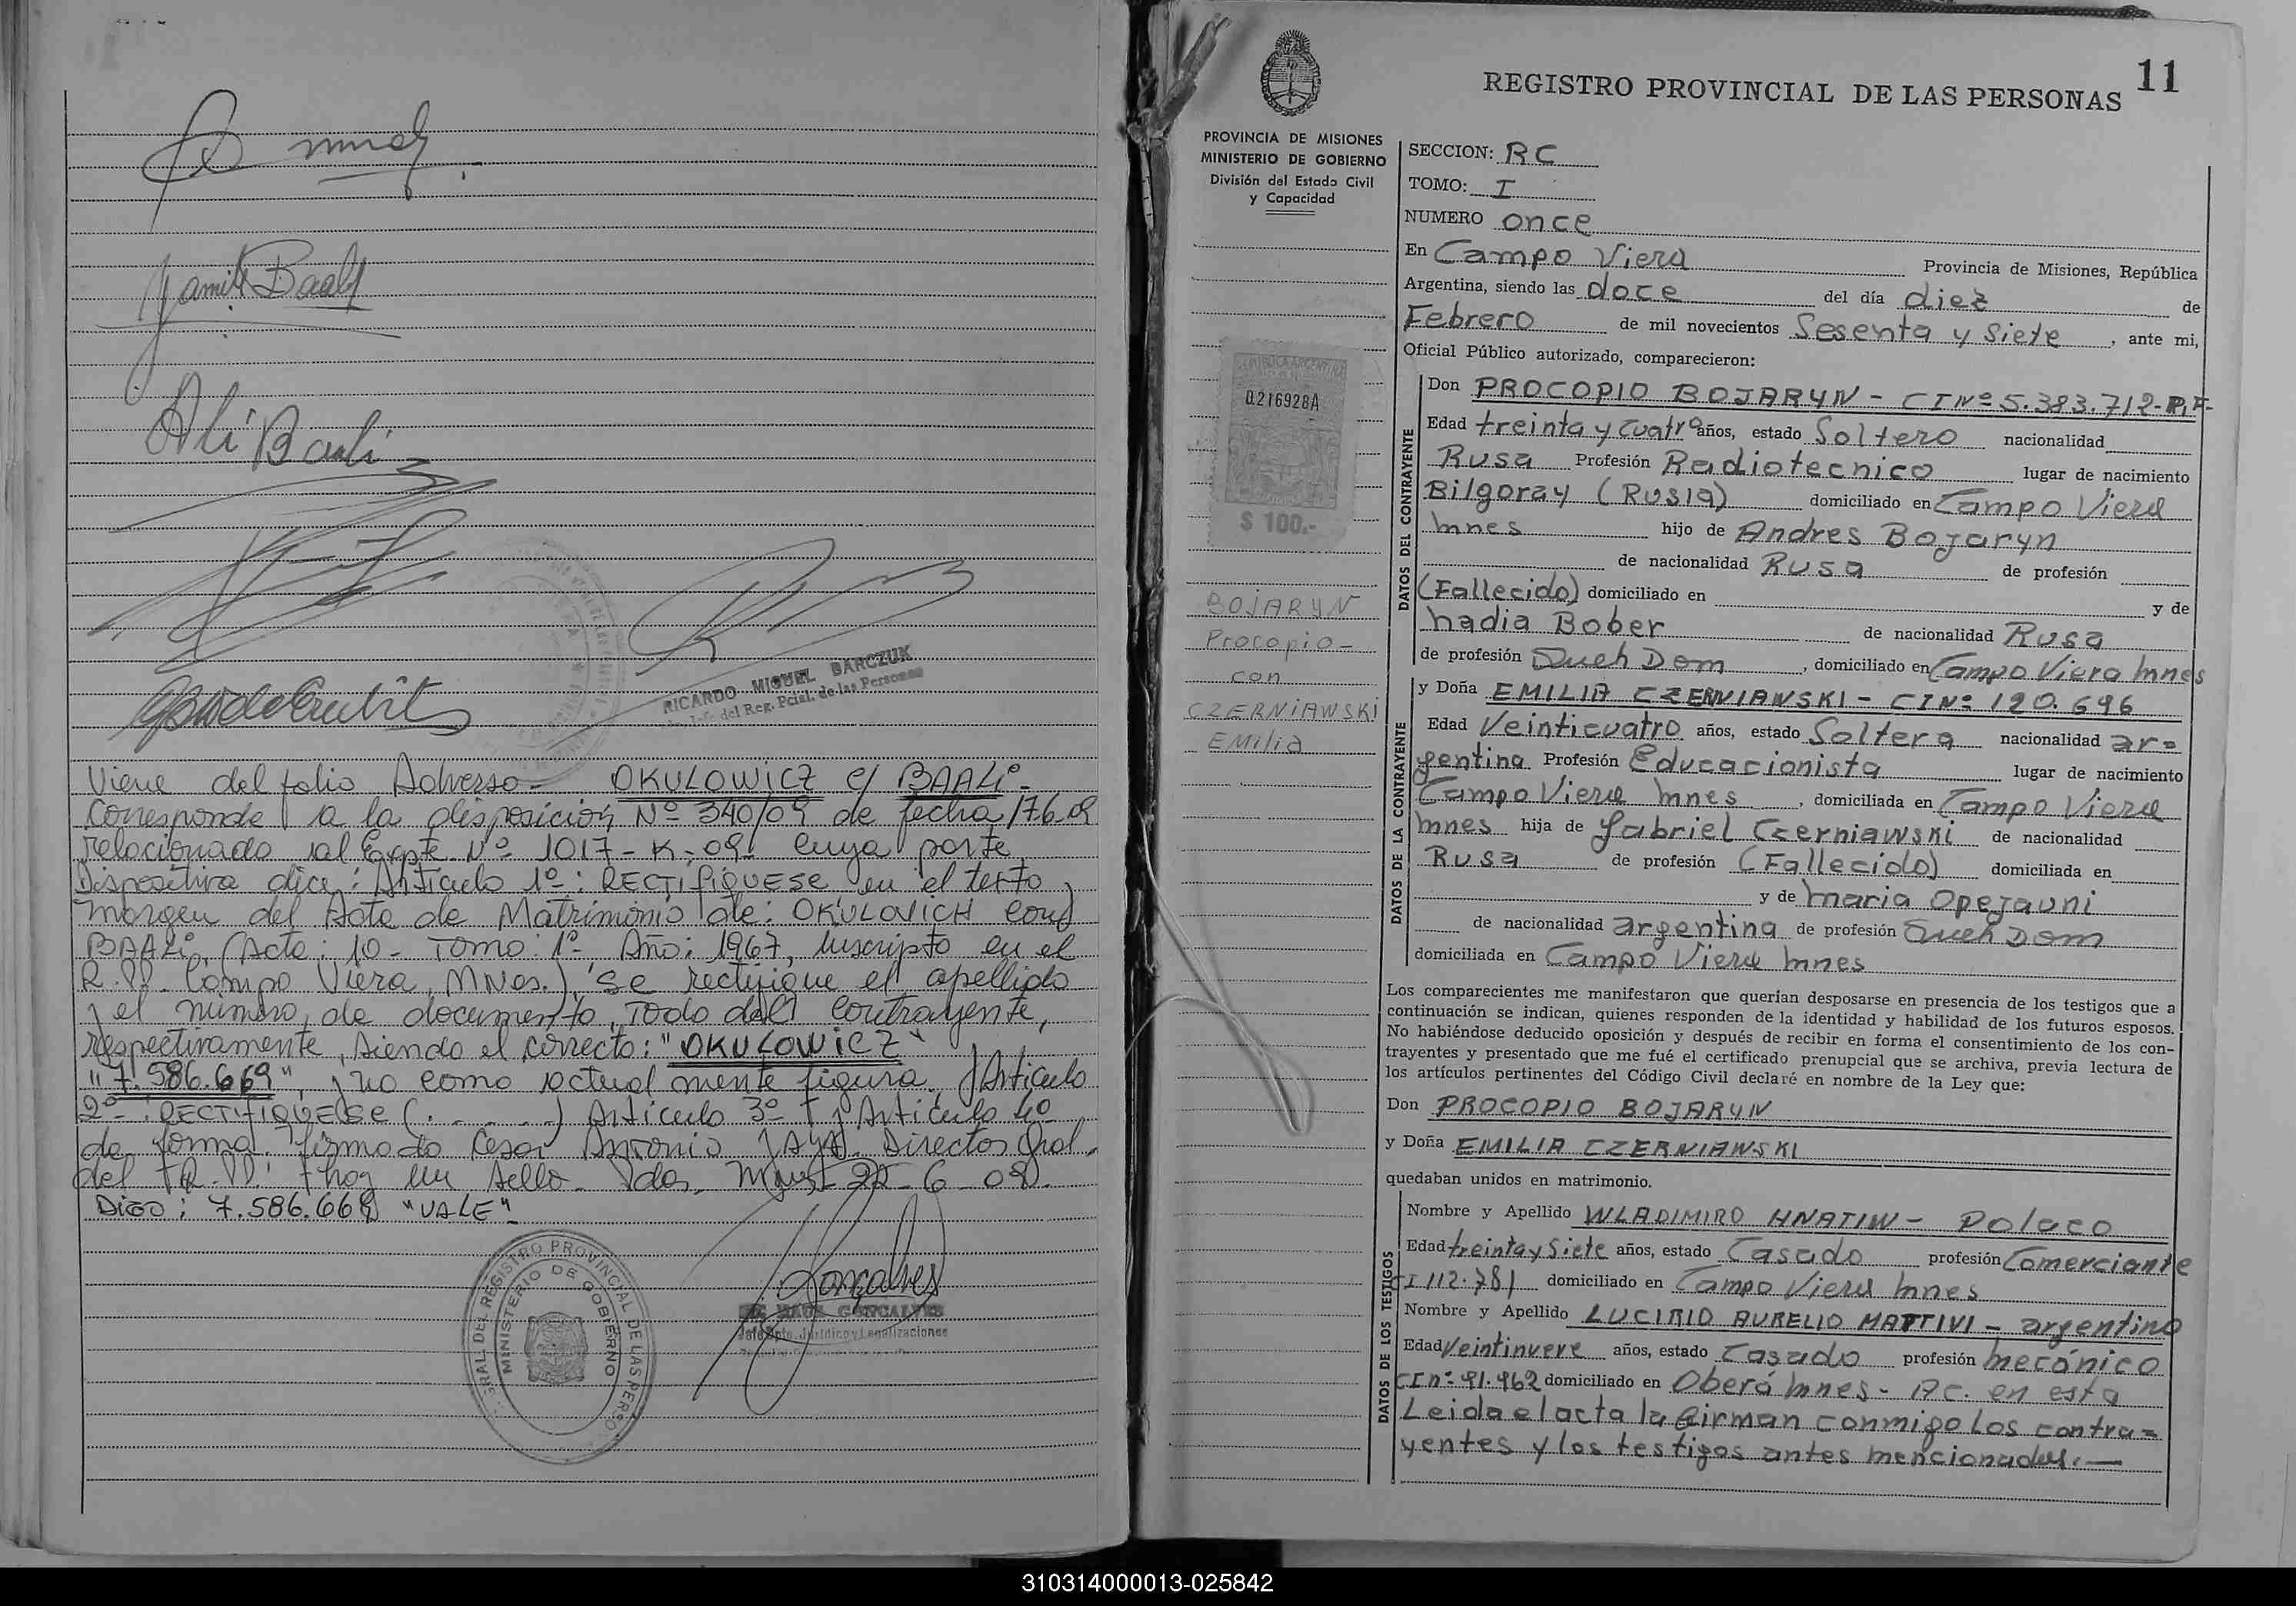 Jamil Baaly
Ali Baali
RICARDO MIGUEL BARCZUK
del Reg. Pcial. de las Personas
Viene del folio Adverso - OKULOWICZ c/ BAALi -
Corresponde a la disposición Nº 340/09 de fecha
relacionado al Expte Nº 1017-K-09- cuya parte
Dispositiva dice: Artículo 1º: RECTIFIQUESE en el texto y
margen del Acta de Matrimonio de: OKULOVICH con
BAALi, (Acta: 10 - Tomo: 1º - Año: 1967, Inscripto en el
R.PP. Campo Viera, MNes.), se rectifique el apellido
y el número de documento, Todo del contrayente,
respectivamente, siendo el correcto: "OKULOWICZ"
"7.586.669", y no como actualmente figura. Artículo
2º- : RECTIFIQUESE (. . . . .) Artículo 3º y Artículo 4º
de forma. firmado Cesar Antonio Director Gral.
del R.PP. hay un sello. Pdas. Mnes 22-6-09.
Digo: 7.586.668 "VALE"
REGISTRO PROVINCIAL DE LAS PERSONAS
MINISTERIO DE GOBIERNO
Gonçalves
GONCALVES
Jefe Dpto. Jurídico y Legalizaciones
11
REGISTRO PROVINCIAL DE LAS PERSONAS
PROVINCIA DE MISIONES
MINISTERIO DE GOBIERNO
División del Estado Civil
y Capacidad
REPUBLICA ARGENTINA
0216928A
$ 100.-
BOJARYN
Procopio -
con
CZERNIAWSKI
Emilia
SECCION: RC
TOMO: I
NUMERO once
En Campo Viera Provincia de Misiones, República
Argentina, siendo las doce del día diez de
Febrero de mil novecientos Sesenta y Siete, ante mi,
Oficial Público autorizado, comparecieron:
DATOS DEL CONTRAYENTE
Don PROCOPIO BOJARYN - CI Nº 5.383.712-P.F-
Edad treinta y cuatro años, estado Soltero nacionalidad
Rusa Profesión Radiotecnico lugar de nacimiento
Bilgoray (Rusia) domiciliado en Campo Viera
Mnes hijo de Andres Bojaryn
de nacionalidad Rusa de profesión
(Fallecido) domiciliado en y de
Nadia Bober de nacionalidad Rusa
de profesión Queh Dom, domiciliado en Campo Viera Mnes
DATOS DE LA CONTRAYENTE
y Doña EMILIA CZERNIAWSKI - CI Nº 120.696
Edad Veinticuatro años, estado Soltera nacionalidad ar=
gentina Profesión Educacionista lugar de nacimiento
Campo Viera Mnes, domiciliada en Campo Viera
Mnes hija de Gabriel Czerniawski de nacionalidad
Rusa de profesión (Fallecido) domiciliada en
y de Maria Opejauni
de nacionalidad argentina de profesión Queh Dom
domiciliada en Campo Viera Mnes
Los comparecientes me manifestaron que querían desposarse en presencia de los testigos que a
continuación se indican, quienes responden de la identidad y habilidad de los futuros esposos.
No habiéndose deducido oposición y después de recibir en forma el consentimiento de los con-
trayentes y presentado que me fué el certificado prenupcial que se archiva, previa lectura de
los artículos pertinentes del Código Civil declaré en nombre de la Ley que:
Don PROCOPIO BOJARYN
y Doña EMILIA CZERNIAWSKI
quedaban unidos en matrimonio.
DATOS DE LOS TESTIGOS
Nombre y Apellido WLADIMIRO HNATIW - Polaco
Edad treinta y Siete años, estado Casado profesión Comerciante
CI 112.781 domiciliado en Campo Viera Mnes
Nombre y Apellido LUCIRIO AURELIO MATTIVI - argentino
Edad Veintinueve años, estado Casado profesión mecánico
CI nº 91.962 domiciliado en Oberá Mnes - AC. en esta
Leida el acta la firman conmigo los contra=
yentes y los testigos antes mencionados. —
310314000013-025842